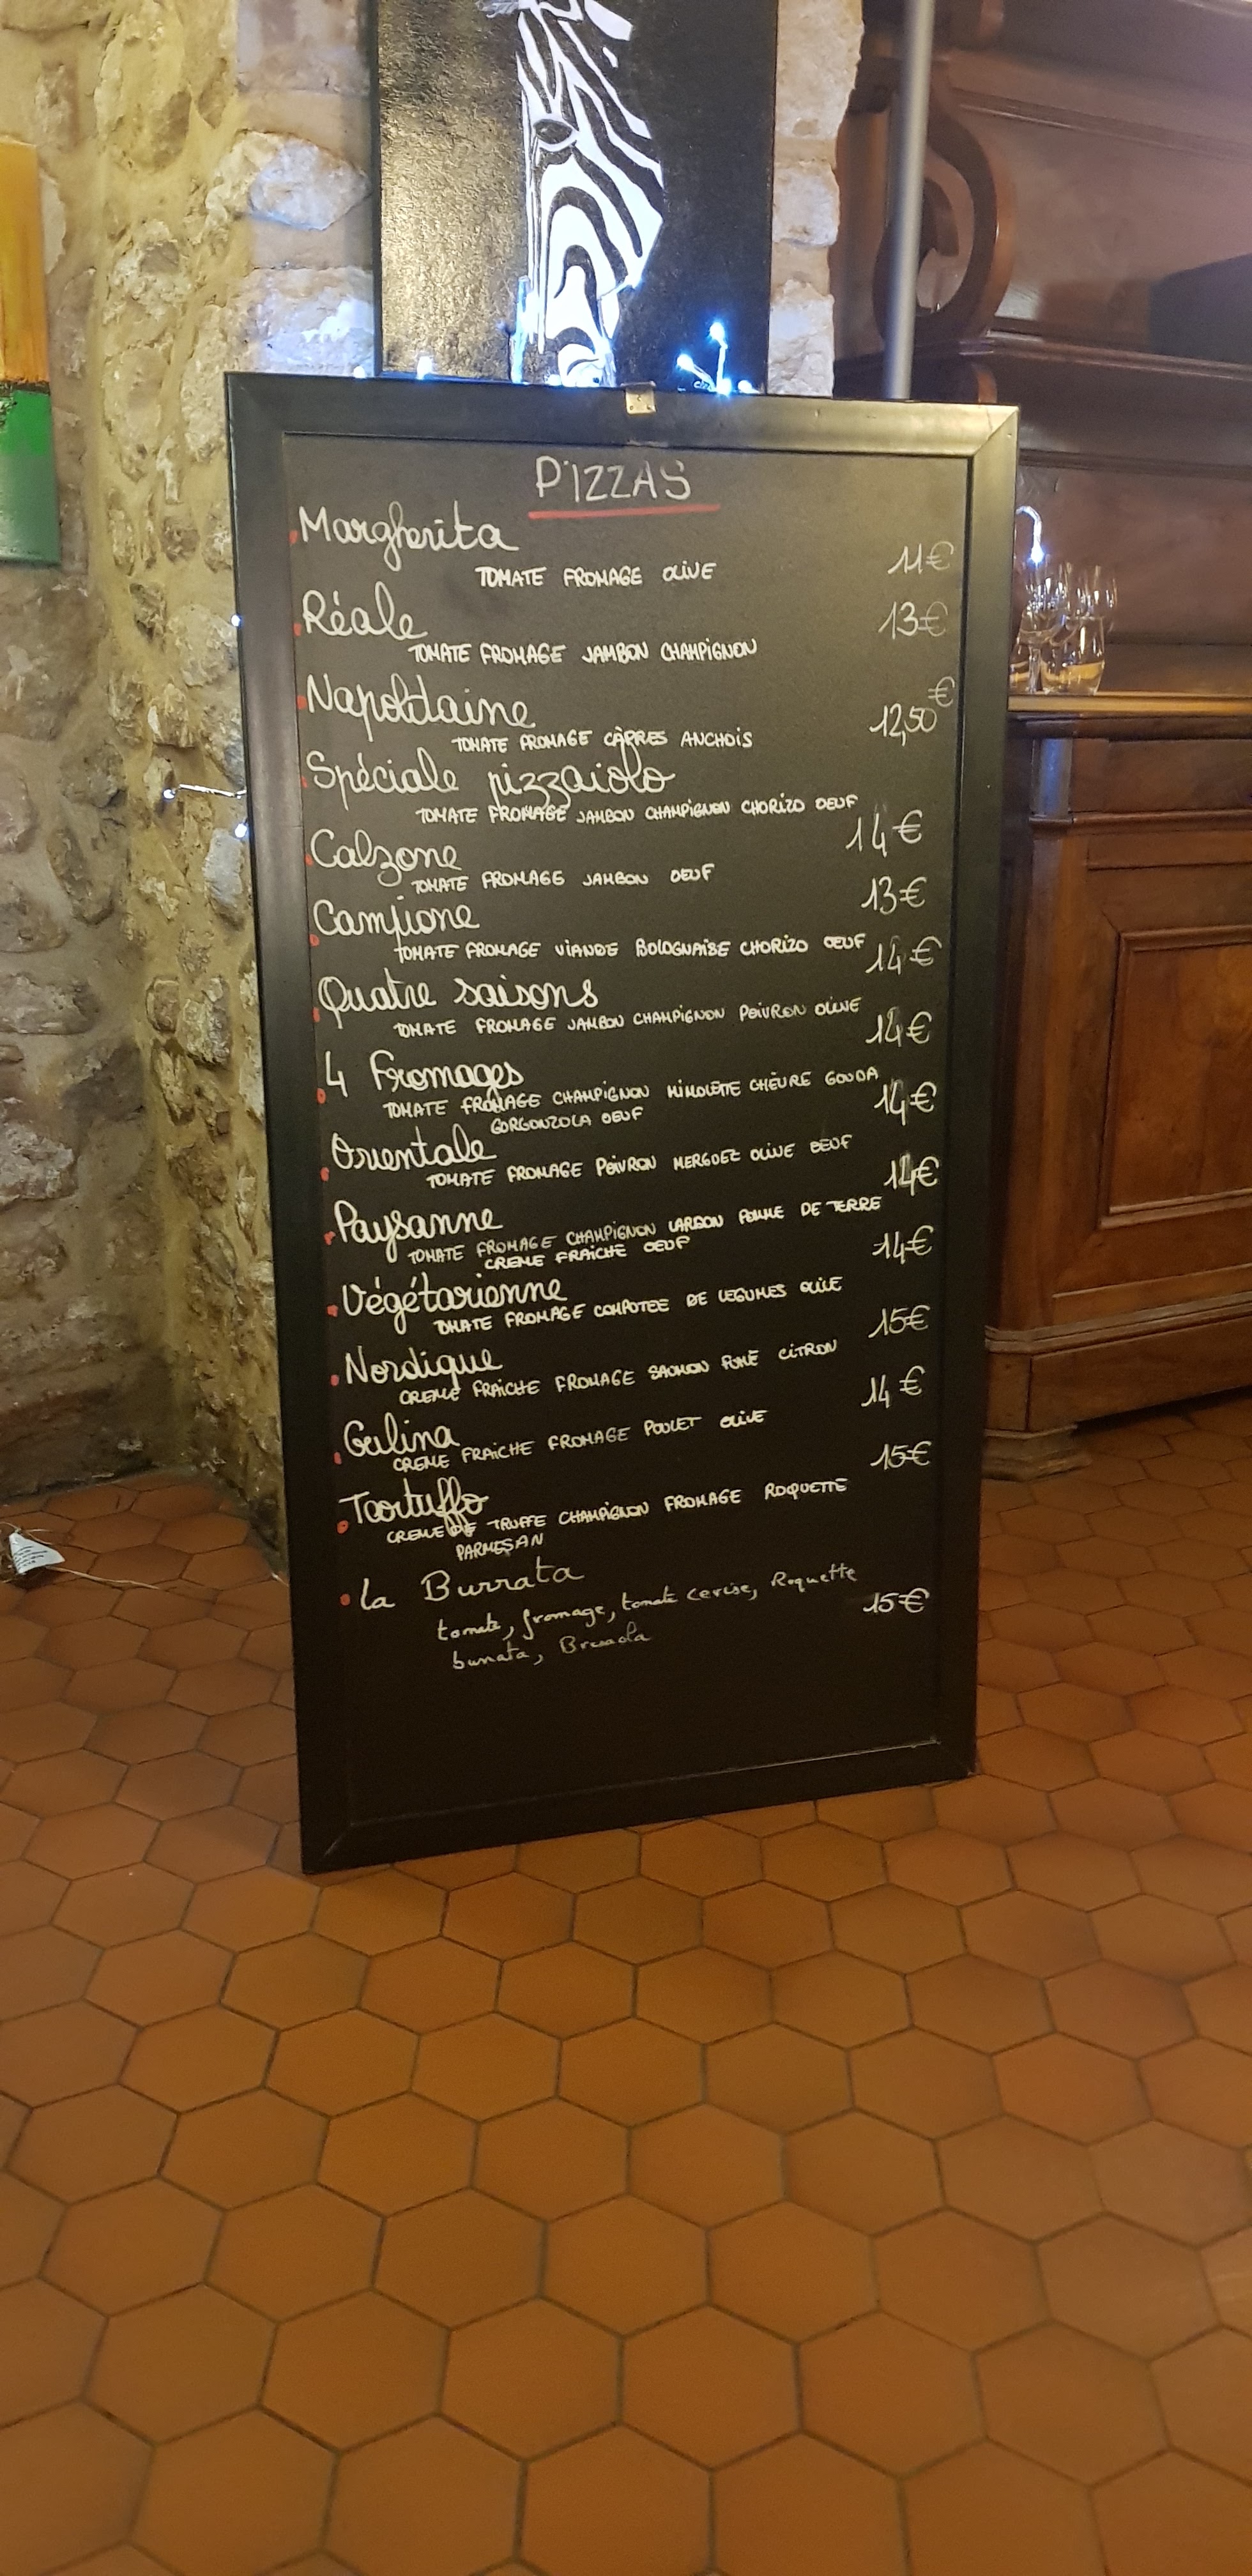 PIZZAS
Margherita
TOMATE FROMAGE OLIVE 11€
Réale 13€
TOMATE FROMAGE JAMBON CHAMPIGNON
Napolitaine 12,50€
TOMATE FROMAGE CÂPRES ANCHOIS
Spéciale pizzaiolo
TOMATE FROMAGE JAMBON CHAMPIGNON CHORIZO OEUF
Calzone 14€
TOMATE FROMAGE JAMBON OEUF
Campione 13€
TOMATE FROMAGE VIANDE BOLOGNAISE CHORIZO OEUF 14€
Quatre saisons
TOMATE FROMAGE JAMBON CHAMPIGNON POIVRON OLIVE 14€
4 Fromages
TOMATE FROMAGE CHAMPIGNON MIMOLETTE CHÈVRE GOUDA 14€
GORGONZOLA OEUF
Orientale
TOMATE FROMAGE POIVRON MERGUEZ OLIVE OEUF 14€
Paysanne
TOMATE FROMAGE CHAMPIGNON LARDON POMME DE TERRE
CREME FRAÎCHE OEUF 14€
Végétarienne
TOMATE FROMAGE COMPOTEE DE LEGUMES OLIVE
Nordique 15€
CREME FRAICHE FROMAGE SAUMON FUMÉ CITRON
Galina 14€
CREME FRAICHE FROMAGE POULET OLIVE
Tartuffo 15€
CREME DE TRUFFE CHAMPIGNON FROMAGE ROQUETTE
PARMESAN
La Burrata
tomate, fromage, tomate cerise, Roquette 15€
burrata, Bresaola